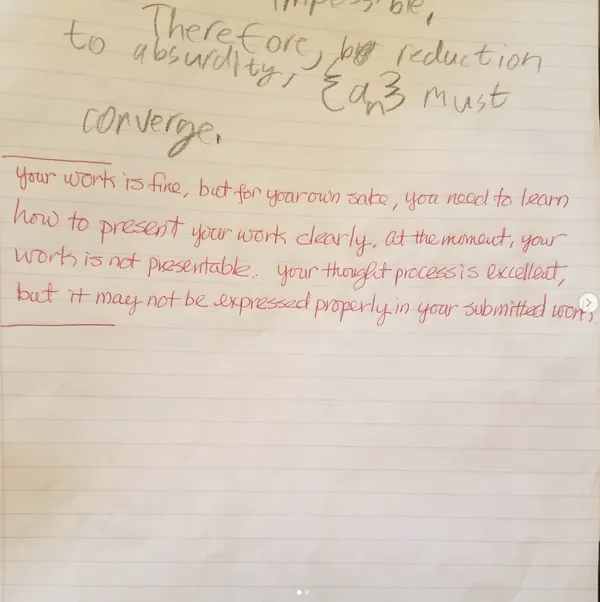 impossible,
Therefore, by reduction
to absurdity, {an} must
converge.
your work is fine, but for your own sake, you need to learn
how to present your work clearly. at the moment, your
work is not presentable. your thought process is excellent,
but it may not be expressed properly in your submitted work.